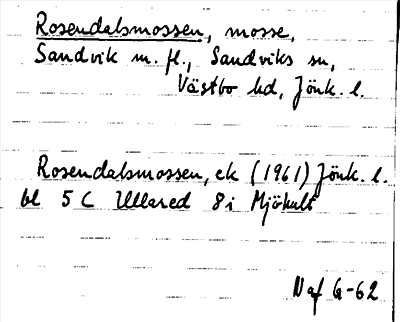 Rosendalsmossen, mosse,
Sandvik m. fl., Sandviks sn,
Västbo hd, Jönk. l.
Rosendalsmossen, ek (1961) Jönk. l.
bl 5 C Ullared 8 i Mjöhult
Naf G-62